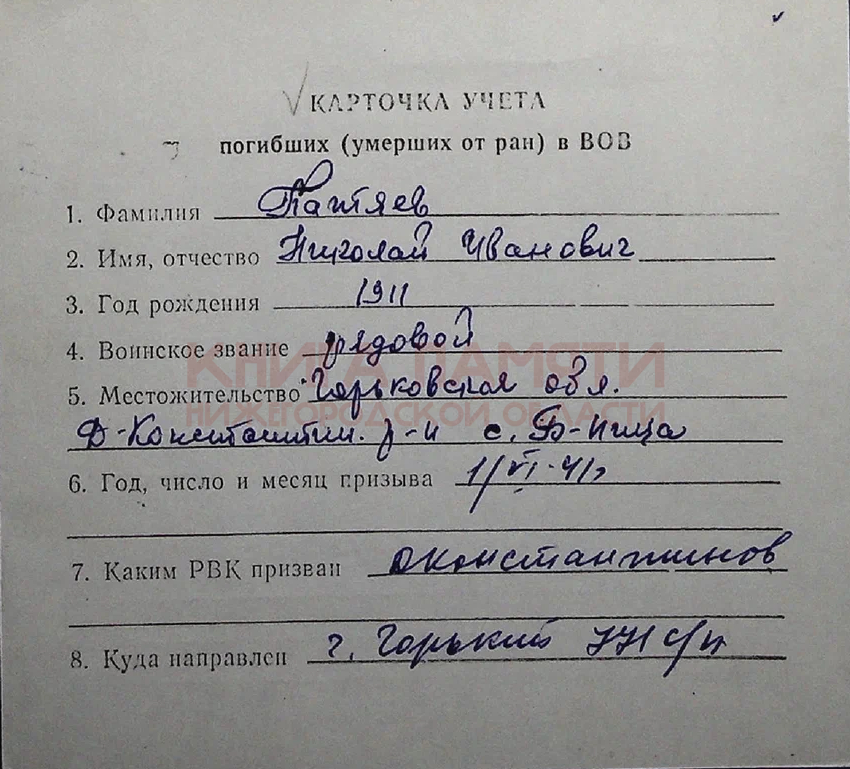 КАРТОЧКА УЧЕТА
погибших (умерших от ран) в ВОВ
1. Фамилия Паштяев
2. Имя, отчество Николай Иванович
3. Год рождения 1911
4. Воинское звание рядовой
КНИГА ПАМЯТИ
5. Местожительство Горьковская обл.
НИЖЕГОРОДСКОЙ ОБЛАСТИ
Д-Константин. р-н с.
6. Год, число и месяц призыва
7. Каким РВК призван ДКонстантинов
8. Куда направлен г. Горький с/п